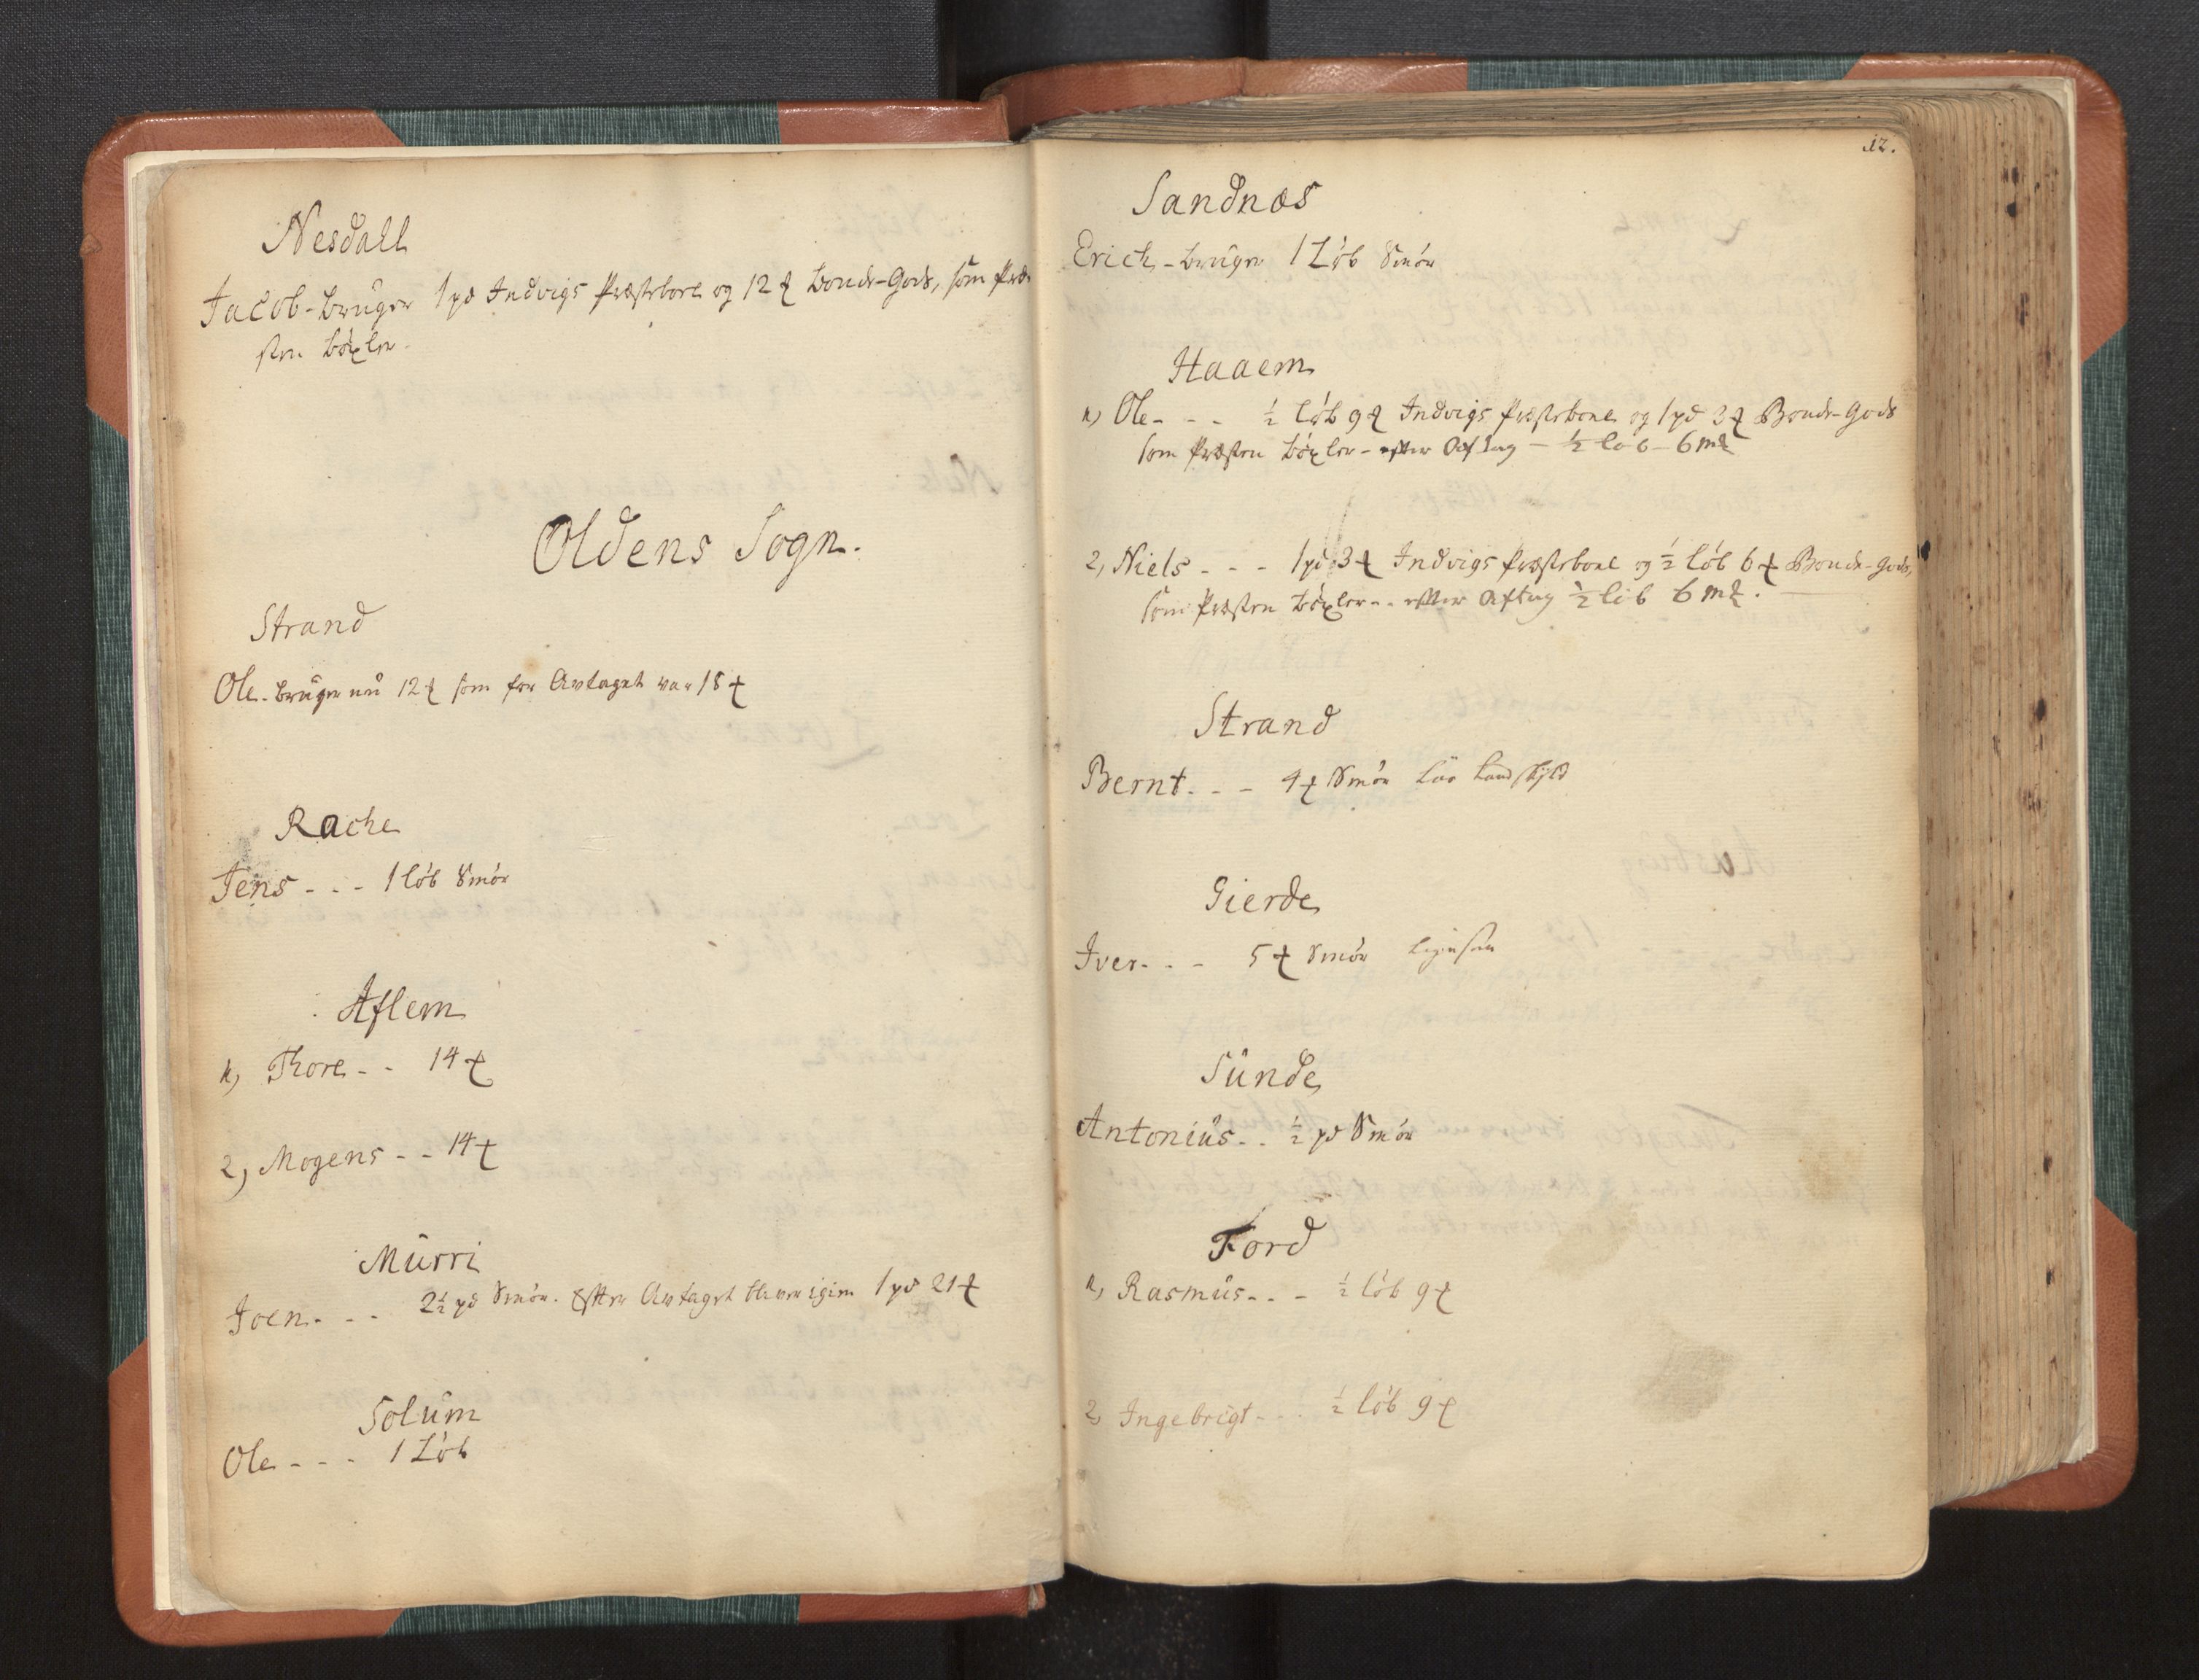 Nesdall
Jacob - bruger 1 pd Indvigs Præstebord og 12 ℔ Bonde-Gods, som Præ-
sten böxler.
Oldens Sogn.
Strand
Ole - bruger nu 12 ℔ som før Avtaget var 18 ℔
Rache
Jens - - - 1 löb Smör
Aflem
1, Thore - - 14 ℔
2, Mogens - - 14 ℔
Murri
Joen - - - 2½ pd Smör. Efter Avtaget bliver igien 1 pd 21 ℔
Solum
Ole - - - 1 Löb
12.
Sandnæs
Erich - bruger 1 Löb Smör
Haaem
1, Ole - - - ½ löb 9 ℔ Indvigs Præstebord og 1 pd 3 ℔ Bonde-Gods
som Præsten böxler - efter Aftag - ½ löb - 6 m℔
2, Niels - - - 1 pd 3 ℔ Indvigs Præstebord og ½ löb 6 ℔ Bonde-Gods,
som Præsten böxler - - efter Aftag ½ löb 6 m℔.
Strand
Bernt - - - 4 ℔ Smör Landskyld
Gierde
Iver - - - 5 ℔ Smör
Sunde
Antonius - - ½ pd Smör
Ford
1, Rasmus - - - ½ löb 9 ℔
2, Ingebrigt - - - ½ löb 9 ℔